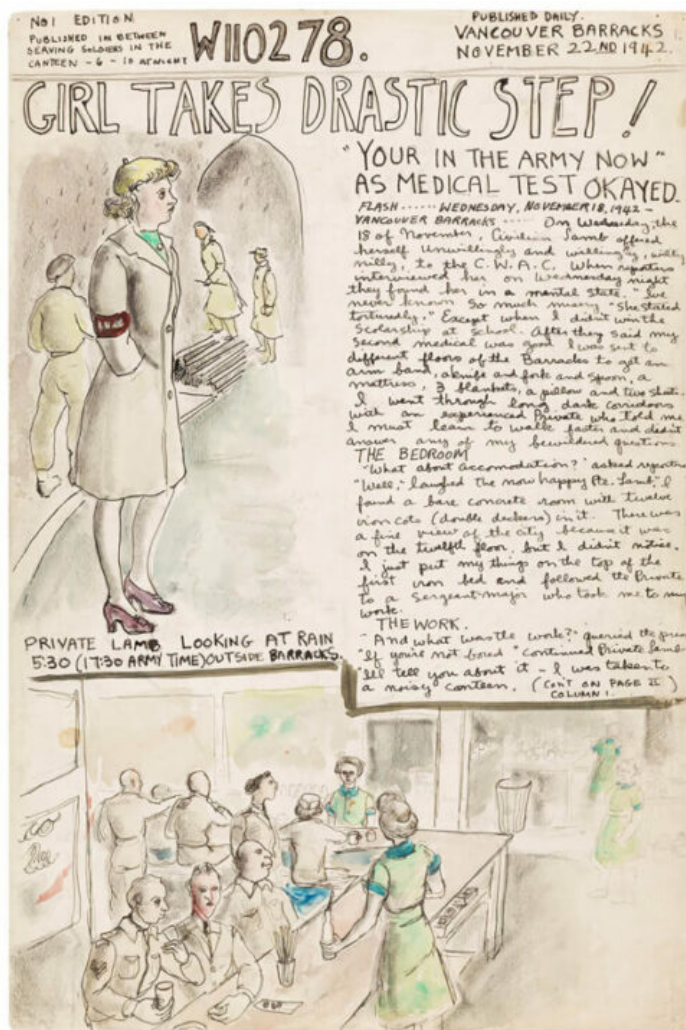 No 1 EDITION
PUBLISHED IN BETWEEN
SERVING SOLDIERS IN THE
CANTEEN - 6 - 10 AT NIGHT
W110278.
PUBLISHED DAILY.
VANCOUVER BARRACKS
NOVEMBER 22ND 1942.
GIRL TAKES DRASTIC STEP!
"YOUR IN THE ARMY NOW"
AS MEDICAL TEST OKAYED.
FLASH ...... WEDNESDAY, NOVEMBER 18, 1942 -
VANCOUVER BARRACKS ...... On Wednesday, the
18 of November, Civilian Lamb offered
herself unwillingly and willingly, willy
nilly, to the C.W.A.C. When reporters
interviewed her on Wednesday night
they found her in a mental state. "I've
never known so much misery" She stated
torturedly. "Except when I didn't win the
Scolarship at school. After they said my
second medical was good I was sent to
different floors of the Barracks to get an
arm band, a knife and fork and spoon, a
mattress, 3 blankets, a pillow and two sheets.
I went through long dark corridors
with an experienced Private who told me
I must learn to walk faster and didn't
answer any of my bewildered questions
THE BEDROOM
"What about accomodation?" asked reporters
"Well," laughed the now happy Pte. Lamb, "I
found a bare concrete room with twelve
iron cots (double deckers) in it. There was
a fine view of the city because it was
on the twelfth floor, but I didn't notice.
I just put my things on the top of the
first iron bed and followed the Private
to a Sergeant-major who took me to my
work.
THE WORK.
"And what was the work?" queried the press
"If you're not bored" continued Private Lamb
"I'll tell you about it - I was taken to
a noisy canteen. (CON'T ON PAGE II
COLUMN 1.
PRIVATE LAMB LOOKING AT RAIN
5:30 (17:30 ARMY TIME) OUTSIDE BARRACKS.